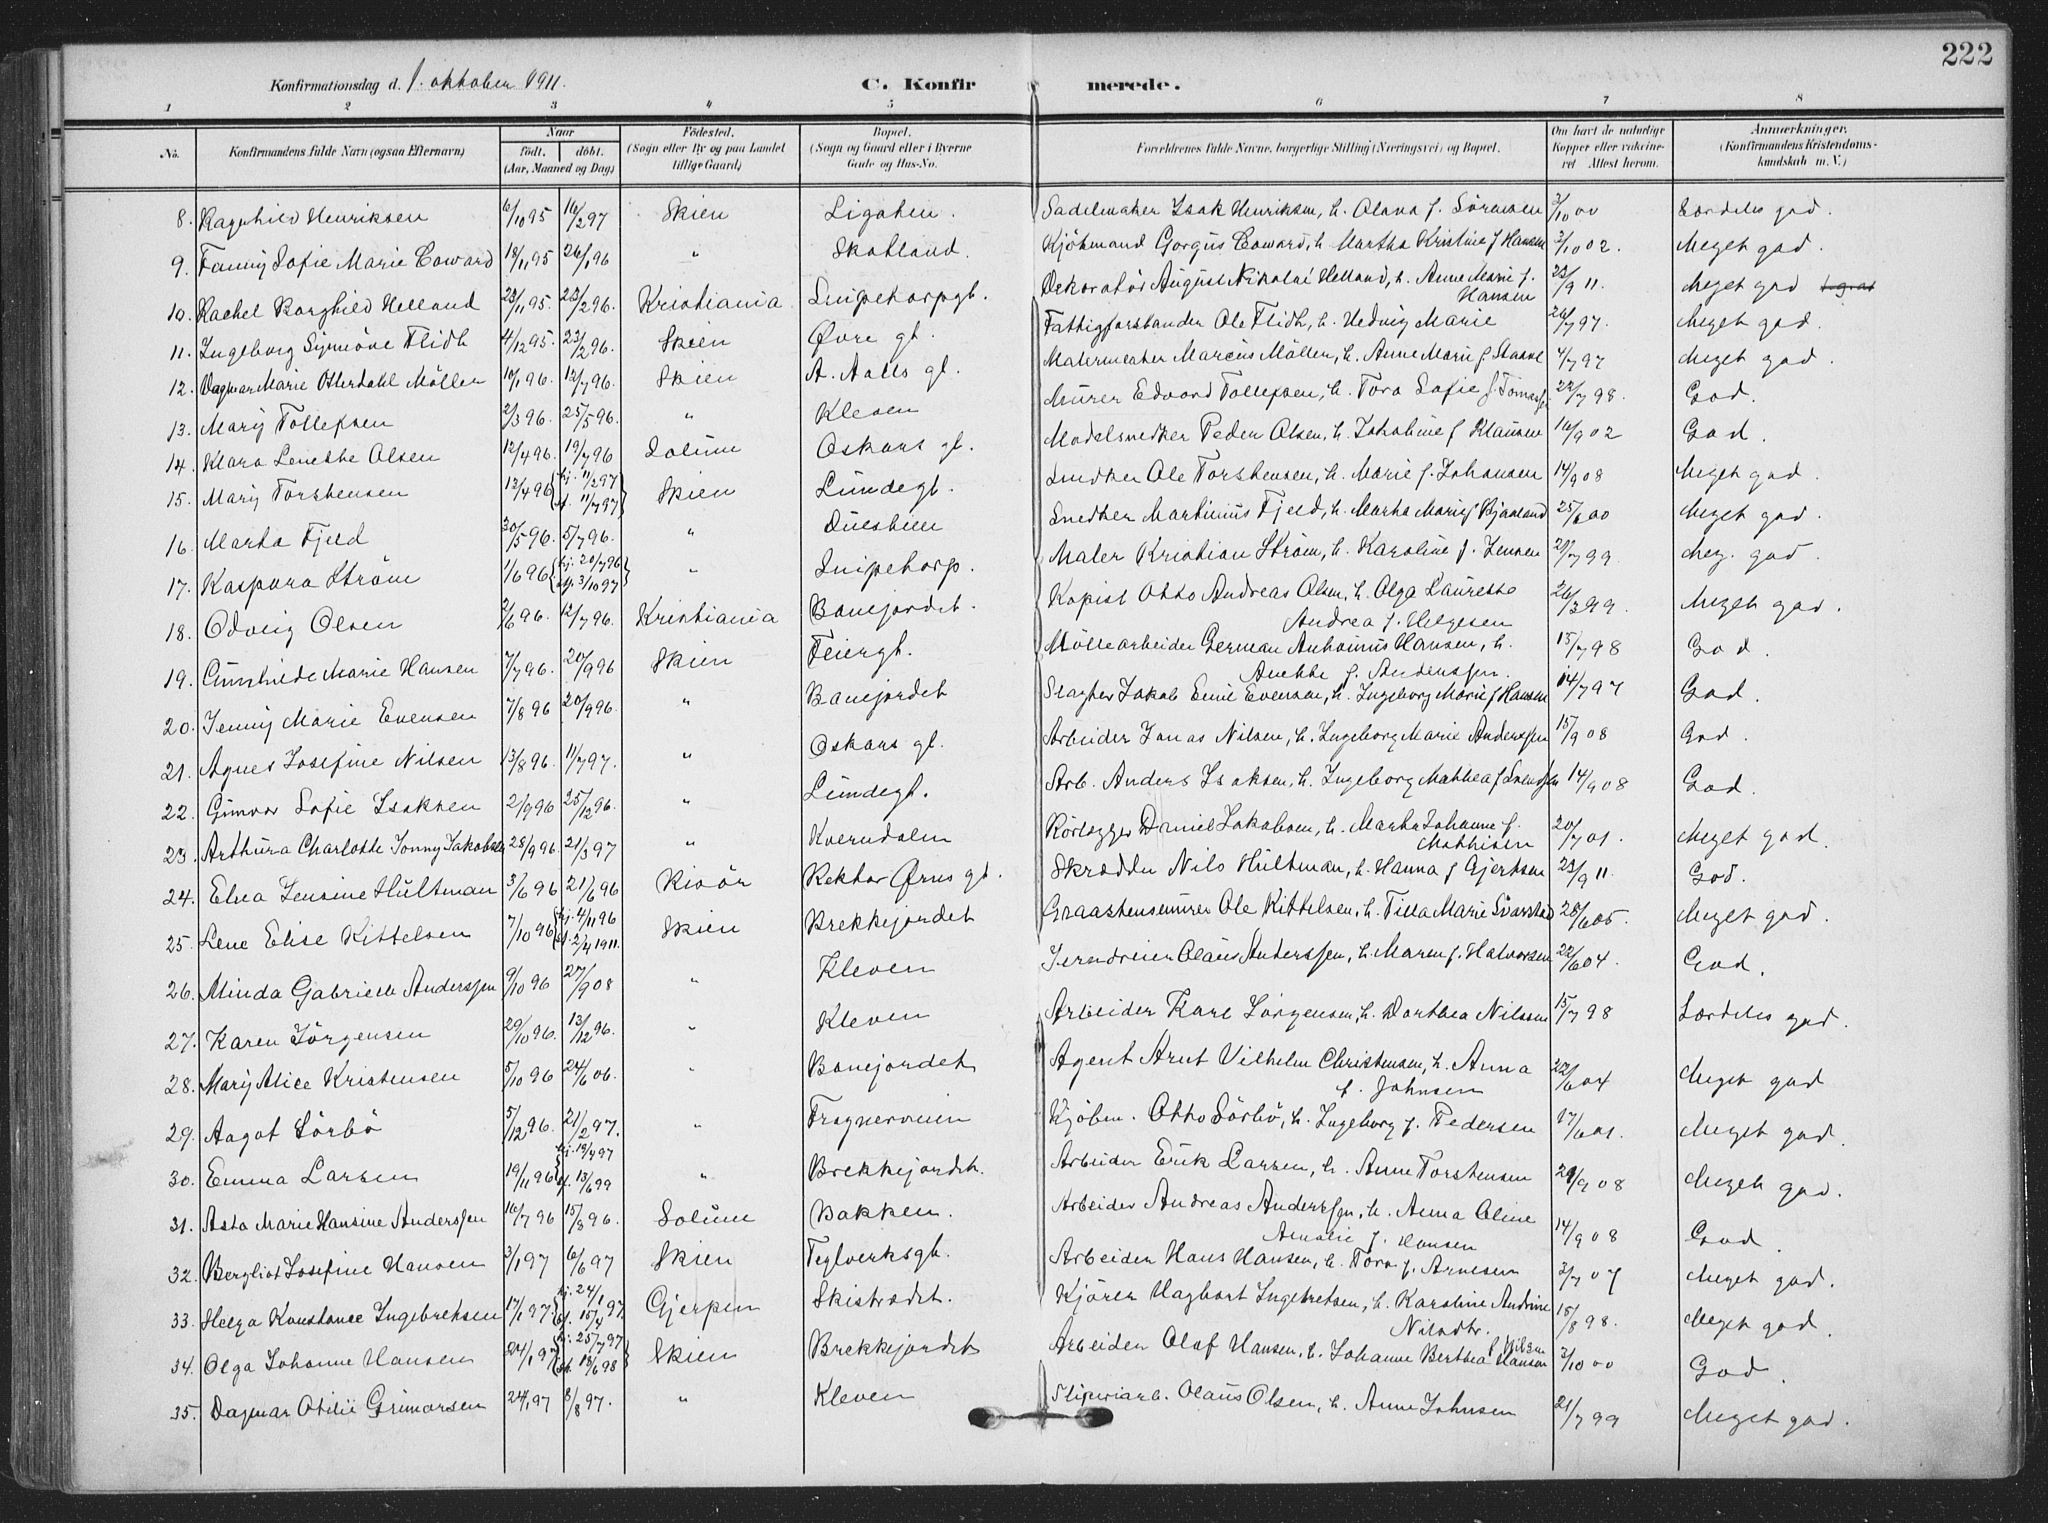 222
Konfirmationsdag d. 1. oktober 1911. C. Konfirmerede.
1 2 3 4 5 6 7 8
No. Konfirmandens fulde Navn (ogsaa Efternavn) Naar födt. döbt. (Aar, Maaned og Dag) Födested. (Sogn eller By og paa Landet tillige Gaard) Bopæl. (Sogn og Gaard eller i Byerne Gade og Hus-No. Forældrenes fulde Navne, borgerlige Stilling (Næringsvei) og Bopæl. Om havt de naturlige Kopper eller vakcineret Attest herom. Anmærkninger. (Konfirmandens Kristendomskundskab m. V.)
8. Ragnhild Henriksen 6/10 95 16/2 97 Skien Ligaten. Sadelmaker Isak Henriksen, h. Olava f. Sörensen 3/10 00 Særdeles god.
9. Fanny Sofie Marie Coward 18/11 95 26/1 96 " Skotland. Kjöbmand Gorgus Coward, h. Martha Kristine f Hansen 3/10 02. Meget god.
10. Rachel Borghild Helland 23/11 95. 23/2 96. Kristiania Snipetorpgt. Dekoratör August Nikolai Helland, h. Anne Marie f. Hansen 23/9 11. Meget god
11. Ingeborg Synnöve Flidh 4/12 95. 23/2 96. Skien Övre gt. Fattigforstander Ole Flidh, h. Hedvig Marie 26/7 97. Meget god.
12. Dagmar Marie Otterdahl Möller 10/1 96. 12/7 96. Skien A. Aalls gt. Malermester Marcus Möller, h. Anne Marie f Staael 4/7 97 Meget god.
13. Mary Tollefsen 2/3 96. 25/5 96. " Kleven Murer Edvard Tollefsen, h. Tora Sofie f. 22/7 98. God.
14. Klara Lenette Olsen 12/4 96. 19/7 96 Solum Oskars gt. Modelsnedker Peder Olsen, h. Jakobine f Klausen 16/9 02 God.
15. Mary Torstensen 13/4 96 { hj. 11/2 97 st. 11/7 97 } Skien Lundegt. Snedker Ole Torstensen, h. Marie f. Johansen 14/9 08 Meget god.
16. Marta Fjeld 30/5 96. 5/7 96. " Duestien Snedker Martinius Fjeld, h. Marta Marie f Kjaaland 25/6 00 Meget god.
17. Kaspara Ström 1/6 96 { hj. 20/7 96 st. 3/10 97 } " Snipetorp. Maler Kristian Ström, h. Karoline f. Jensen 21/7 99 Meg. god.
18. Odveig Olsen 2/6 96. 12/7 96. Kristiania Banejordet. Kopist Otto Andreas Olsen, h. Olga Laurette Andrea f. Helgesen 26/3 99. Meget god.
19. Gunhilde Marie Hansen 7/7 96. 20/9 96 Skien Feiergt. Möllearbeider German Antonius Hansen, h. Anette f. Anderssen. 15/7 98 God.
20. Jenny Marie Evensen 7/8 96 20/9 96. " Banejordet Slagter Jakob Emil Evensen, h. Ingeborg Marie f Hansen 14/7 97 God.
21. Agnes Josefine Nilsen 13/8 96. 11/7 97. " Oskars gt. Arbeider Jonas Nilsen, h. Ingeborg Marie Anderssen 15/9 08 God.
22. Gunvor Sofie Isaksen 2/9 96 25/12 96. " Lundegt. Arb. Anders Isaksen, h. Ingeborg Mathea f Svendsen 14/9 08 God.
23. Arthura Charlotte Jonny Jakobsen 28/9 96. 21/3 97 " Kverndalen Rörlegger Daniel Jakobsen, h. Marta Johanne f. Mathisen 20/7 01. Meget god.
24. Elna Jensine Hultman 3/6 96 21/6 96 Risör Rektor Örns gt. Skrædder Nils Hultman, h. Hanna f Gjertsen 23/9 11. God.
25. Lene Elise Kittelsen 7/10 96 { hj. 4/11 96 st. 2/4 1911. Skien Brekkejordet Graastensmurer Ole Kittelsen, h. Tilla Marie Svarstad 28/6 05. Meget god.
26. Minda Gabrielle Anderssen 9/10 96 27/9 08 " Kleven Jerndreier Olaus Anderssen, h. Maren f. Halvorsen 22/6 04. God.
27. Karen Jörgensen 29/10 96. 13/12 96. " Kleven Arbeider Karl Jörgensen, h. Dorthea Nilssen 15/7 98 Særdeles god.
28. Mary Alice Kristensen 5/10 96 24/6 06. " Banejordet Agent Arnt Vilhelm Christensen, h. Anna f. Johnsen 22/6 04 Meget god
29. Aagot Sörbö 5/12 96. 21/2 97. " Frognerveien Kjöbm. Otto Sörbö, h. Ingeborg f. Pedersen 17/6 01. Meget god.
30. Emma Larsen 19/11 96 { hj. 19/4 97 st. 13/6 99 " Brekkejordet. Arbeider Erik Larsen, h. Anne Torstensen 21/9 08 Meget god.
31. Asta Marie Hansine Anderssen 16/7 96 15/8 96. Solum Bakken. Arbeider Andreas Anderssen, h. Anna Oline Amalie f. Hansen 14/9 08 God.
32. Bergliot Josefine Hansen 3/1 97 6/6 97 Skien Teglverksgt. Arbeider Hans Hansen, h. Tora f. Arnesen 3/7 07 Meget god.
33. Helga Konstance Ingebretsen 17/1 97 { hj. 24/1 st. 15/4 97 Gjerpen Skistrædet. Kjörer Hagbart Ingebretsen, h. Karoline Andrine Nilsdtr. 15/8 98. Meget god.
34. Olga Johanne Hansen 24/1 97 { hj. 25/7 97 st. 13/6 98 } Skien Brekkejordet Arbeider Olaf Hansen, h. Johanne Berthea Hansen f Nilsen 3/10 00 God.
35. Dagmar Otilie Grimarsen 24/1 97 8/8 97. " Kleven Sliperiarb. Olaus Olsen, h. Anne Johnsen 21/7 99 Meget god.